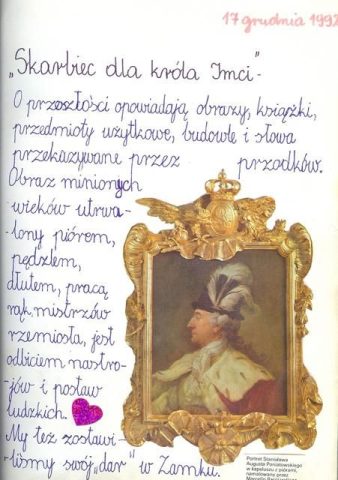 17 grudnia 1992
„Skarbiec dla króla Jmci"-
O przeszłości opowiadają obrazy, książki,
przedmioty użytkowe, budowle i słowa
przekazywane przez przodków.
Obraz minionych
wieków utrwa-
lony piórem,
pędzlem,
dłutem, pracą
rąk mistrzów
rzemiosła, jest
odbiciem nastro-
jów i postaw
ludzkich.
My też zostawi-
liśmy swój „dar" w Zamku.
Portret Stanisława
Augusta Poniatowskiego
w kapeluszu z piórami,
namalowany przez
Marcello Bacciarellego